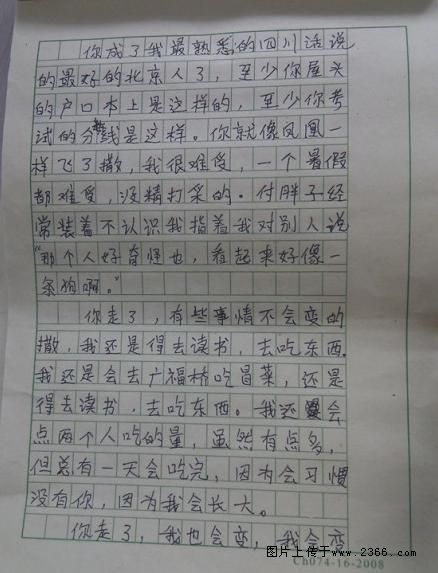 你成了我最熟悉的四川话说
的最好的北京人了，至少你屋头
的户口本上是这样的，至少你考
试的分数线是这样。你就像凤凰一
样飞了撒，我很难受，一个暑假
都难受，没精打采的。付胖子经
常装着不认识我指着我对别人说
“那个人好奇怪也，看起来好像一
条狗啊。”
你走了，有些事情不会变的
撒，我还是得去读书，去吃东西。
我还是会去广福桥吃冒菜，还是
得去读书，去吃东西。我还会
点两个人吃的量，虽然有点多，
但总有一天会吃完，因为会习惯
没有你，因为我会长大。
你走了，我也会变，我会变
图片上传于www.2366.com
Ch074-16-2008